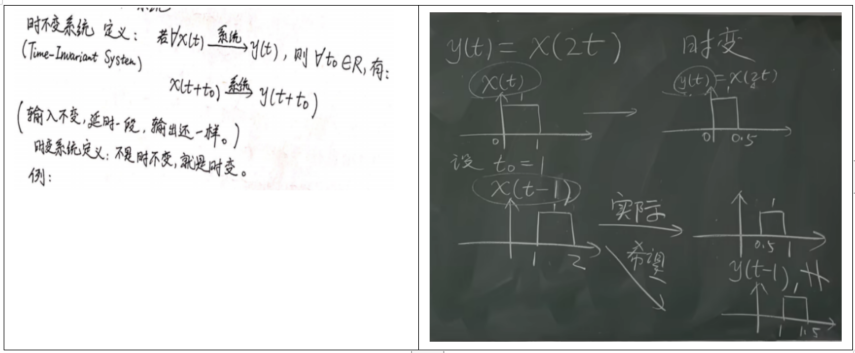 时不变系统 定义： 若∀x(t) 系统→ y(t), 则 ∀t₀∈R, 有:
(Time-Invariant System)
x(t+t₀) 系统→ y(t+t₀)
(输入不变，延时一段，输出还一样。)
时变系统定义：不是时不变，就是时变。
例：
y(t) = x(2t) 时变
x(t) → y(t) = x(2t)
1 1
0 1 0 0.5
设 t₀=1
x(t-1)
1 实际 1
1 2 0.5 1
希望
y(t-1),
1
1 1.5